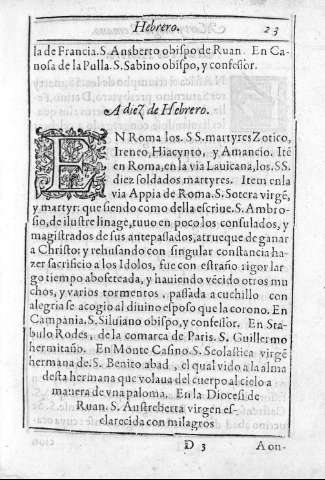 Hebrero. 23
la de Francia. S. Ansberto obispo de Ruan. En Ca-
nosa de la Pulla. S. Sabino obispo, y confessor.
A diez de Hebrero.
EN Roma los. SS. martyres Zotico,
Ireneo, Hiacynto, y Amancio. Itē
en Roma, en la via Lauicana, los. SS.
diez soldados martyres. Item en la
via Appia de Roma. S. Sotera virgē,
y martyr: que siendo como della escriue. S. Ambro-
sio, de ilustre linage, tuuo en poco los consulados, y
magistrados de sus antepassados, a trueque de ganar
a Christo: y rehusando con singular constancia ha-
zer sacrificio a los Idolos, fue con estraño rigor lar
go tiempo abofeteada, y hauiendo vēcido otros mu
chos, y varios tormentos, passada a cuchillo con
alegria se acogio al diuino esposo que la corono. En
Campania. S. Siluiano obispo, y confessor. En Sta-
bulo Rodes, de la comarca de Paris. S. Guillermo
hermitaño. En Monte Casino. S. Scolastica virgē
hermana de. S. Benito abad, el qual vido a la alma
desta hermana que volaua del cuerpo al cielo a
manera de vna paloma. En la Diocesi de
Ruan. S. Austreberta virgen es-
clarecida con milagros
D 3 A on-